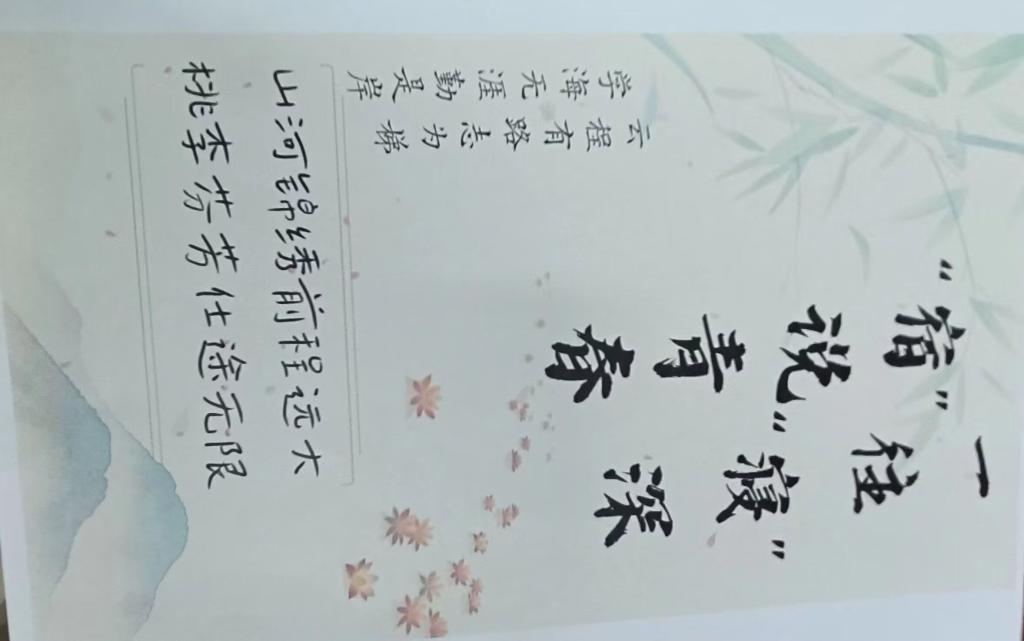 “宿”说青春
一往“寝”深
学海无涯勤是岸
云程有路志为梯
山河锦绣前程远大
桃李芬芳仕途无限